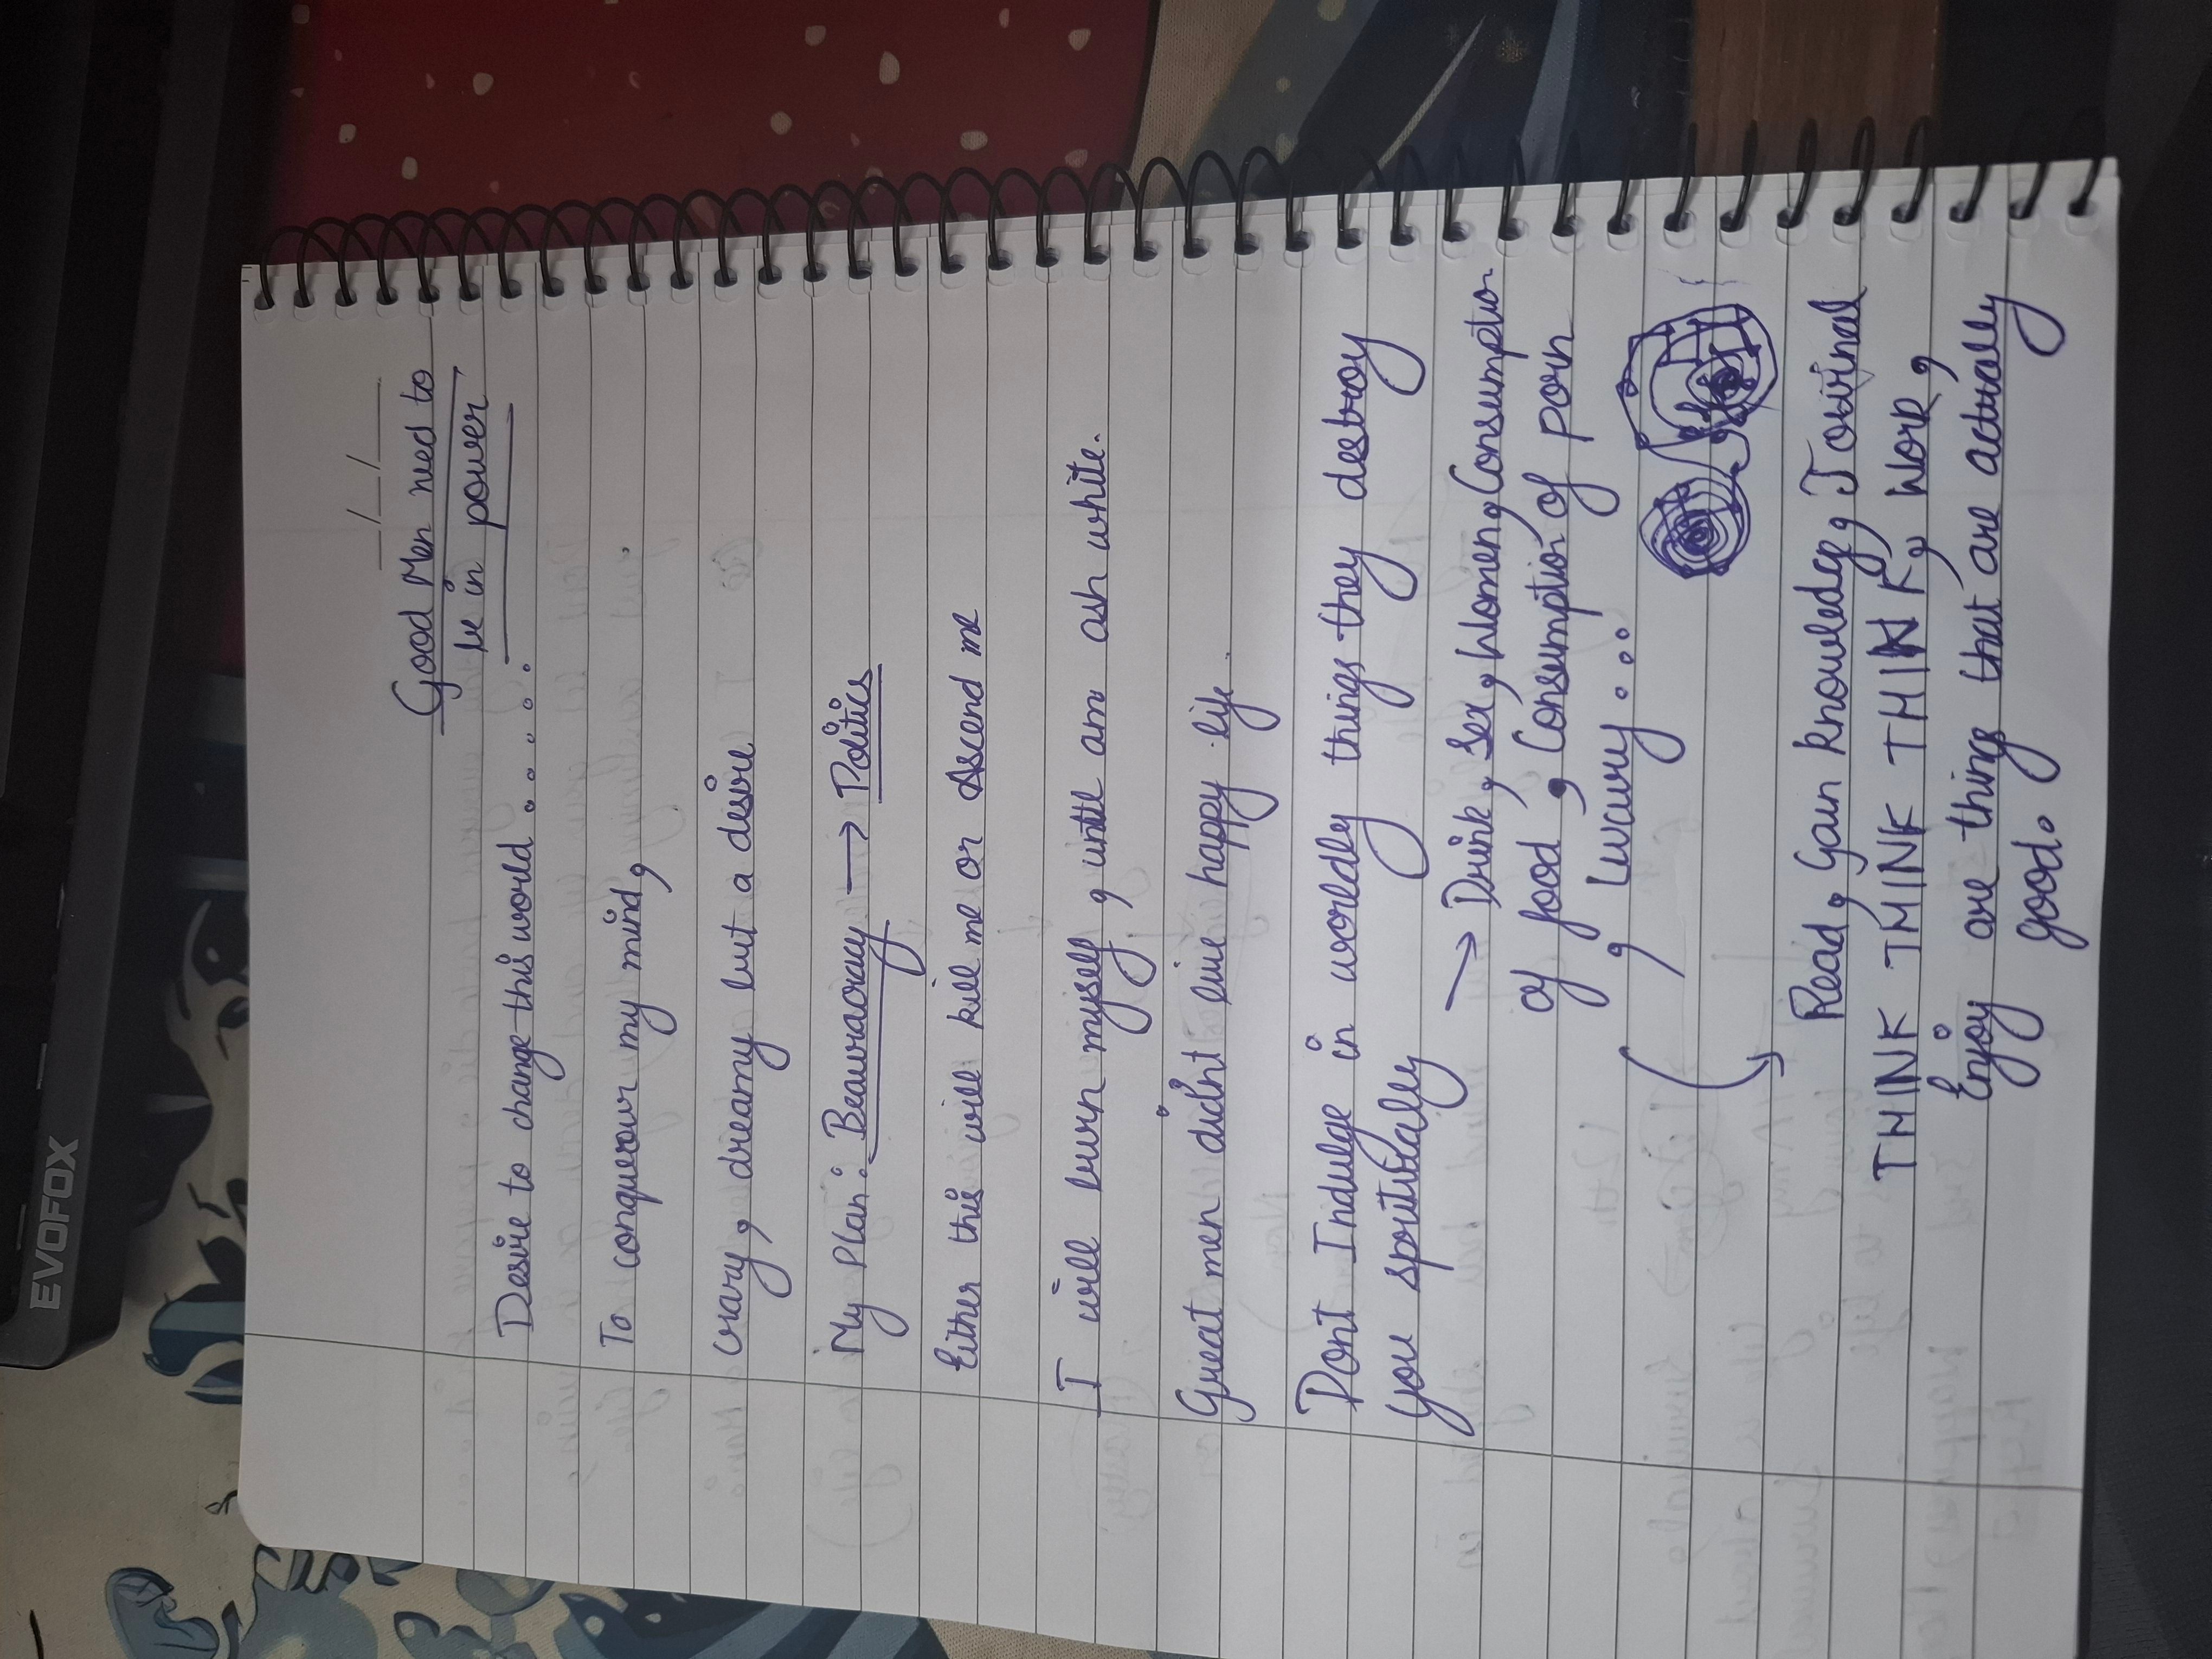 EVOFOX
Good Men need to
be in power
Desire to change this world . . . . .
To conquerour my mind,
crazy, dreamy but a desire
My Plan: Beauracracy → Politics
Either this will kill me or Ascend me
I will burn myself, until am ash white.
Great men didnt live happy life
Dont Indulge in worldly things they destroy
you spiritually → Drink, Sex, Women, Consumption
of food, Consumption of porn
, luxury . . .
Read, Gain knowledge,
THINK THINK THINK, WORK,
Enjoy are things that are actually
good.